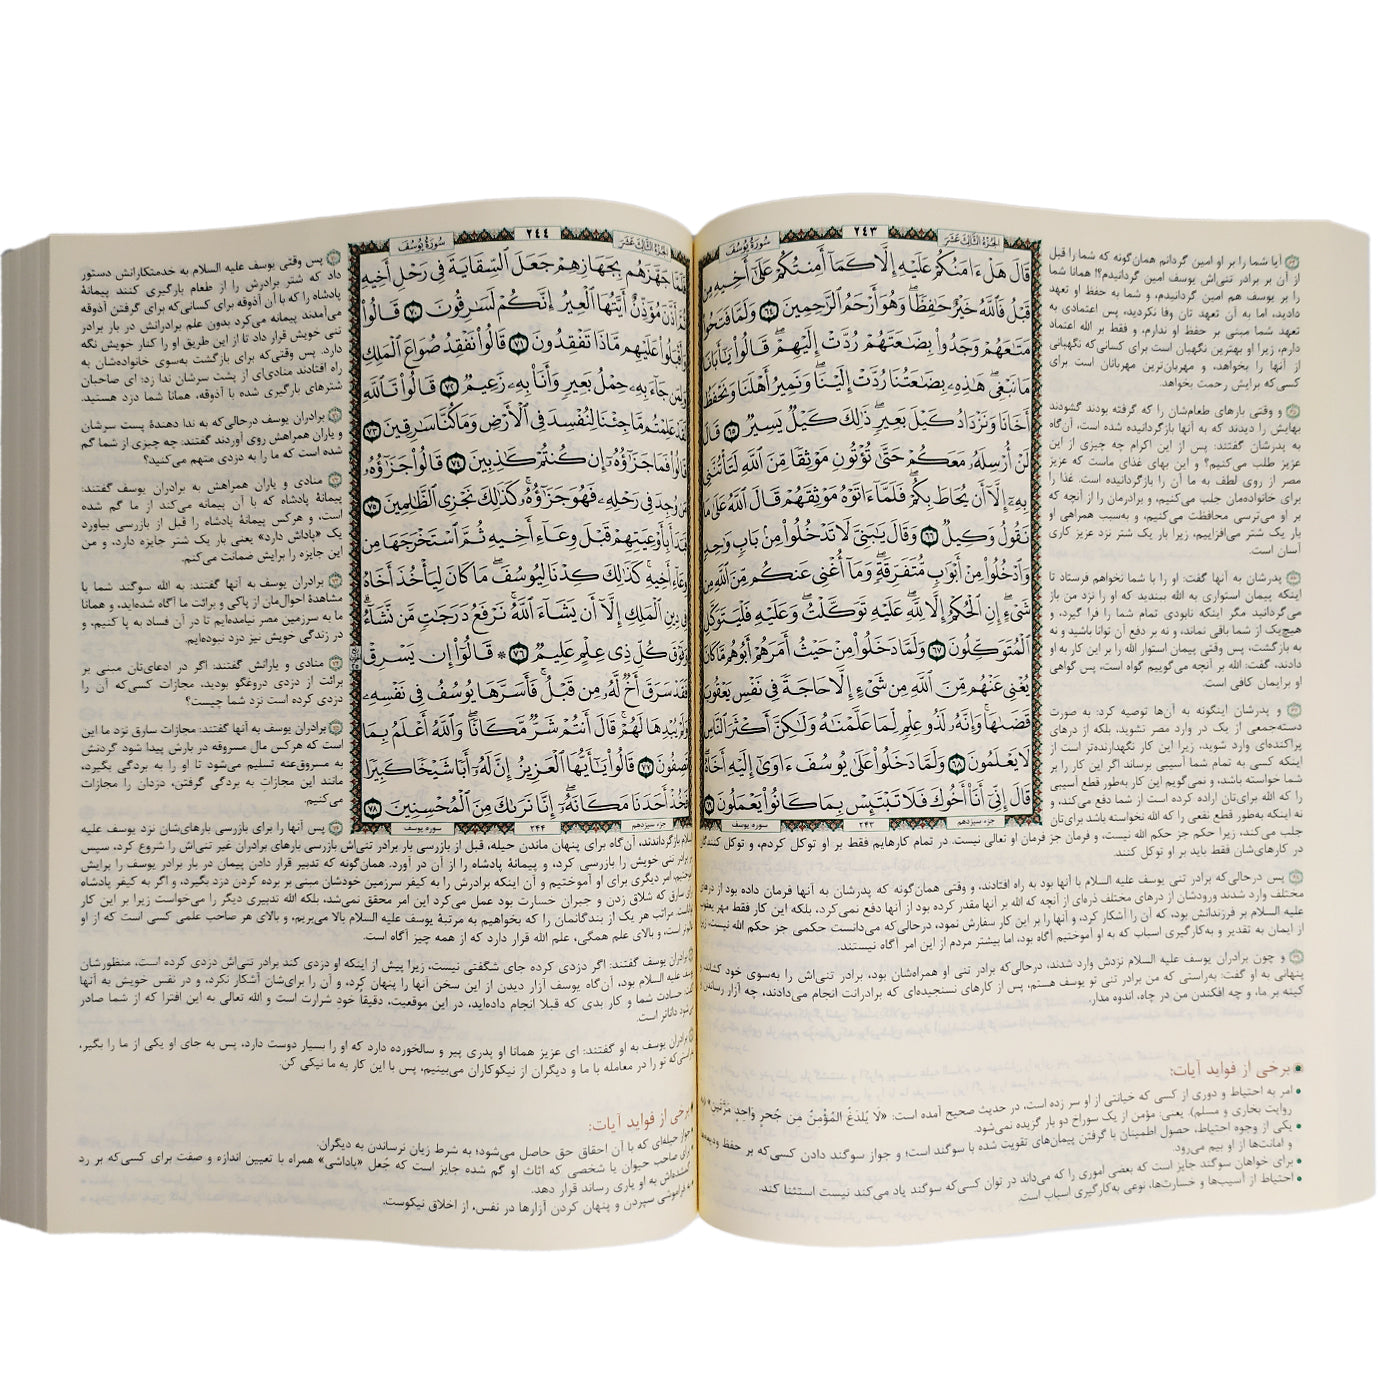 الجزء الثالث عشر
٢٤٣
سورة يوسف
قَالَ هَلْ ءَامَنُكُمْ عَلَيْهِ إِلَّا كَمَآ أَمِنتُكُمْ عَلَىٰٓ أَخِيهِ مِن
قَبْلُ فَٱللَّهُ خَيْرٌ حَٰفِظًا ۖ وَهُوَ أَرْحَمُ ٱلرَّٰحِمِينَ ٦٤ وَلَمَّا فَتَحُوا۟
مَتَٰعَهُمْ وَجَدُوا۟ بِضَٰعَتَهُمْ رُدَّتْ إِلَيْهِمْ ۖ قَالُوا۟ يَٰٓأَبَانَا
مَا نَبْغِى ۖ هَٰذِهِۦ بِضَٰعَتُنَا رُدَّتْ إِلَيْنَا ۖ وَنَمِيرُ أَهْلَنَا وَنَحْفَظُ
أَخَانَا وَنَزْدَادُ كَيْلَ بَعِيرٍ ۖ ذَٰلِكَ كَيْلٌ يَسِيرٌ ٦٥ قَالَ
لَنْ أُرْسِلَهُۥ مَعَكُمْ حَتَّىٰ تُؤْتُونِ مَوْثِقًا مِّنَ ٱللَّهِ لَتَأْتُنَّنِى
بِهِۦٓ إِلَّآ أَن يُحَاطَ بِكُمْ ۖ فَلَمَّآ ءَاتَوْهُ مَوْثِقَهُمْ قَالَ ٱللَّهُ عَلَىٰ مَا
نَقُولُ وَكِيلٌ ٦٦ وَقَالَ يَٰبَنِىَّ لَا تَدْخُلُوا۟ مِنۢ بَابٍ وَٰحِدٍ
وَٱدْخُلُوا۟ مِنْ أَبْوَٰبٍ مُّتَفَرِّقَةٍ ۖ وَمَآ أُغْنِى عَنكُم مِّنَ ٱللَّهِ مِن
شَىْءٍ ۖ إِنِ ٱلْحُكْمُ إِلَّا لِلَّهِ ۖ عَلَيْهِ تَوَكَّلْتُ ۖ وَعَلَيْهِ فَلْيَتَوَكَّلِ
ٱلْمُتَوَكِّلُونَ ٦٧ وَلَمَّا دَخَلُوا۟ مِنْ حَيْثُ أَمَرَهُمْ أَبُوهُم مَّا كَانَ
يُغْنِى عَنْهُم مِّنَ ٱللَّهِ مِن شَىْءٍ إِلَّا حَاجَةً فِى نَفْسِ يَعْقُوبَ
قَضَىٰهَا ۚ وَإِنَّهُۥ لَذُو عِلْمٍ لِّمَا عَلَّمْنَٰهُ وَلَٰكِنَّ أَكْثَرَ ٱلنَّاسِ
لَا يَعْلَمُونَ ٦٨ وَلَمَّا دَخَلُوا۟ عَلَىٰ يُوسُفَ ءَاوَىٰٓ إِلَيْهِ أَخَاهُ ۖ
قَالَ إِنِّىٓ أَنَا۠ أَخُوكَ فَلَا تَبْتَئِسْ بِمَا كَانُوا۟ يَعْمَلُونَ ٦٩
جزء سیزدهم
۲۴۳
سوره یوسف
آیا شما را بر او امین گردانم همان‌گونه که شما را قبل
از آن بر برادر تنی‌اش یوسف امین گردانیدم؟! همانا شما
را بر یوسف هم امین گردانیدم، و شما به حفظ او تعهد
دادید، اما به آن تعهد تان وفا نکردید، پس اعتمادی به
تعهد شما مبنی بر حفظ او ندارم، و فقط بر الله اعتماد
دارم، زیرا او بهترین نگهبان است برای کسانی‌که نگهبانی
از آنها را بخواهد، و مهربان‌ترین مهربانان است برای
کسی‌که برایش رحمت بخواهد.
و وقتی بارهای طعام‌شان را که گرفته بودند گشودند
بهایش را دیدند که به آنها بازگردانیده شده است، آن‌گاه
به پدرشان گفتند: پس از این اکرام چه چیزی از این
عزیز طلب می‌کنیم؟ و این بهای غذای ماست که عزیز
مصر از روی لطف به ما آن را بازگردانیده است. غذا را
برای خانواده‌مان جلب می‌کنیم، و برادرمان را از آنچه که
بر او می‌ترسی محافظت می‌کنیم، و به‌سبب همراهی او
بار یک شتر می‌افزاییم، زیرا بار یک شتر نزد عزیز کاری
آسان است.
پدرشان به آنها گفت: او را با شما نخواهم فرستاد تا
اینکه پیمان استواری به الله ببندید که او را نزد من باز
می‌گردانید مگر اینکه نابودی تمام شما را فرا گیرد، و
هیچ‌یک از شما باقی نماند، و نه بر دفع آن توانا باشید و نه
به بازگشت، پس وقتی پیمان استوار الله را بر این کار به او
دادند، گفت: الله بر آنچه می‌گوییم گواه است، پس گواهی
او برایمان کافی است.
و پدرشان اینگونه به آن‌ها توصیه کرد: به صورت
دسته‌جمعی از یک در وارد مصر نشوید، بلکه از درهای
پراکنده‌ای وارد شوید، زیرا این کار نگهدارنده‌تر است از
اینکه کسی به تمام شما آسیبی برساند اگر این کار را بر
شما خواسته باشد، و نمی‌گویم این کار به‌طور قطع آسیبی
را که الله برای‌تان اراده کرده است از شما دفع می‌کند، و
نه اینکه به‌طور قطع نفعی را که الله نخواسته باشد برای‌تان
جلب می‌کند، زیرا حکم جز حکم الله نیست، و فرمان جز فرمان او تعالی نیست. در تمام کارهایم فقط بر او توکل کردم، و توکل کنندگان
در کارهای‌شان فقط باید بر او توکل کنند.
پس درحالی‌که برادر تنی یوسف علیه السلام با آنها بود به راه افتادند، و وقتی همان‌گونه که پدرشان به آنها فرمان داده بود از درهای
مختلف وارد شدند ورودشان از درهای مختلف ذره‌ای از آنچه که الله بر آنها مقدر کرده بود از آنها دفع نمی‌کرد، بلکه این کار فقط مهر یعقوب
علیه السلام بر فرزندانش بود، که آن را آشکار کرد، و آنها را بر این کار سفارش نمود، درحالی‌که می‌دانست حکمی جز حکم الله نیست، زیرا
از ایمان به تقدیر و به‌کارگیری اسباب که به او آموختیم آگاه بود، اما بیشتر مردم از این امر آگاه نیستند.
و چون برادران یوسف علیه السلام نزدش وارد شدند، درحالی‌که برادر تنی او همراه‌شان بود، برادر تنی‌اش را به‌سوی خود کشاند، و
پنهانی به او گفت: به‌راستی که من برادر تنی تو یوسف هستم، پس از کارهای نسنجیده‌ای که برادرانت انجام می‌دادند، چه آزار رساندن و
کینه بر ما، و چه افکندن من در چاه، اندوه مدار.
برخی از فواید آیات:
• امر به احتیاط و دوری از کسی که خیانتی از او سر زده است، در حدیث صحیح آمده است: «لَا يُلدَغُ المُؤْمِنُ مِن جُحرٍ وَاحِدٍ مَرَّتَينِ»
روایت بخاری و مسلم). یعنی: مؤمن از یک سوراخ دو بار گزیده نمی‌شود.
• یکی از وجوه احتیاط، حصول اطمینان با گرفتن پیمان‌های تقویت شده با سوگند است؛ و جواز سوگند دادن کسی‌که بر حفظ ودیعه‌ها
و امانت‌ها از او بیم می‌رود.
• برای خواهان سوگند جایز است که بعضی اموری را که می‌داند در توان کسی‌که سوگند یاد می‌کند نیست استثنا کند.
• احتیاط از آسیب‌ها و خسارت‌ها، نوعی به‌کارگیری اسباب است.
الجزء الثالث عشر
٢٤٤
سورة يوسف
فَلَمَّا جَهَّزَهُم بِجَهَازِهِمْ جَعَلَ ٱلسِّقَايَةَ فِى رَحْلِ أَخِيهِ
ثُمَّ أَذَّنَ مُؤَذِّنٌ أَيَّتُهَا ٱلْعِيرُ إِنَّكُمْ لَسَٰرِقُونَ ٧٠ قَالُوا۟
وَأَقْبَلُوا۟ عَلَيْهِم مَّاذَا تَفْقِدُونَ ٧١ قَالُوا۟ نَفْقِدُ صُوَاعَ ٱلْمَلِكِ
وَلِمَن جَآءَ بِهِۦ حِمْلُ بَعِيرٍ وَأَنَا۠ بِهِۦ زَعِيمٌ ٧٢ قَالُوا۟ تَٱللَّهِ
لَقَدْ عَلِمْتُم مَّا جِئْنَا لِنُفْسِدَ فِى ٱلْأَرْضِ وَمَا كُنَّا سَٰرِقِينَ ٧٣
قَالُوا۟ فَمَا جَزَٰٓؤُهُۥٓ إِن كُنتُمْ كَٰذِبِينَ ٧٤ قَالُوا۟ جَزَٰٓؤُهُۥ
مَن وُجِدَ فِى رَحْلِهِۦ فَهُوَ جَزَٰٓؤُهُۥ ۚ كَذَٰلِكَ نَجْزِى ٱلظَّٰلِمِينَ ٧٥
فَبَدَأَ بِأَوْعِيَتِهِمْ قَبْلَ وِعَآءِ أَخِيهِ ثُمَّ ٱسْتَخْرَجَهَا مِن
وِعَآءِ أَخِيهِ ۚ كَذَٰلِكَ كِدْنَا لِيُوسُفَ ۖ مَا كَانَ لِيَأْخُذَ أَخَاهُ
فِى دِينِ ٱلْمَلِكِ إِلَّآ أَن يَشَآءَ ٱللَّهُ ۚ نَرْفَعُ دَرَجَٰتٍ مَّن نَّشَآءُ ۗ
وَفَوْقَ كُلِّ ذِى عِلْمٍ عَلِيمٌ ٧٦ ۞ قَالُوٓا۟ إِن يَسْرِقْ
فَقَدْ سَرَقَ أَخٌ لَّهُۥ مِن قَبْلُ ۚ فَأَسَرَّهَا يُوسُفُ فِى نَفْسِهِۦ
وَلَمْ يُبْدِهَا لَهُمْ ۚ قَالَ أَنتُمْ شَرٌّ مَّكَانًا ۖ وَٱللَّهُ أَعْلَمُ بِمَا
تَصِفُونَ ٧٧ قَالُوا۟ يَٰٓأَيُّهَا ٱلْعَزِيزُ إِنَّ لَهُۥٓ أَبًا شَيْخًا كَبِيرًا
فَخُذْ أَحَدَنَا مَكَانَهُۥٓ ۖ إِنَّا نَرَىٰكَ مِنَ ٱلْمُحْسِنِينَ ٧٨
جزء سیزدهم
۲۴۴
سوره یوسف
پس وقتی یوسف علیه السلام به خدمتکارانش دستور
داد که شتر برادرش را از طعام بارگیری کنند پیمانهٔ
پادشاه را که با آن آذوقه برای کسانی‌که برای گرفتن آذوقه
می‌آمدند پیمانه می‌کرد بدون علم برادرانش در بار برادر
تنی خویش قرار داد تا از این طریق او را کنار خویش نگه
دارد. پس وقتی‌که برای بازگشت به‌سوی خانواده‌شان به
راه افتادند منادی‌ای از پشت سرشان ندا زد: ای صاحبان
شترهای بارگیری شده با آذوقه، همانا شما دزد هستید.
برادران یوسف درحالی‌که به ندا دهندهٔ پست سرشان
و یاران همراهش روی آوردند گفتند: چه چیزی از شما گم
شده است که ما را به دزدی متهم می‌کنید؟
منادی و یاران همراهش به برادران یوسف گفتند:
پیمانهٔ پادشاه که با آن پیمانه می‌کند از ما گم شده
است، و هرکس پیمانهٔ پادشاه را قبل از بازرسی بیاورد
یک «پاداش دارد» یعنی بار یک شتر جایزه دارد، و من
این جایزه را برایش ضمانت می‌کنم.
برادران یوسف به آنها گفتند: به الله سوگند شما با
مشاهدهٔ احوال‌مان از پاکی و برائت ما آگاه شده‌اید، و همانا
ما به سرزمین مصر نیامده‌ایم تا در آن فساد به پا کنیم، و
در زندگی خویش نیز دزد نبوده‌ایم.
منادی و یارانش گفتند: اگر در ادعای‌تان مبنی بر
برائت از دزدی دروغگو بودید، مجازات کسی‌که آن را
دزدی کرده است نزد شما چیست؟
برادران یوسف به آنها گفتند: مجازات سارق نزد ما این
است که هرکس مال مسروقه در بارش پیدا شود گردنش
به مسروق‌عنه تسلیم می‌شود تا او را به بردگی بگیرد،
مانند این مجازات به بردگی گرفتن، دزدان را مجازات
می‌کنیم.
پس آنها را برای بازرسی بارهای‌شان نزد یوسف علیه
السلام بازگرداندند، آن‌گاه برای پنهان ماندن حیله، قبل از بازرسی بار برادر تنی‌اش بازرسی بارهای برادران غیر تنی‌اش را شروع کرد، سپس
بار برادر تنی خویش را بازرسی کرد، و پیمانهٔ پادشاه را از آن در آورد. همان‌گونه که تدبیر قرار دادن پیمان در بار برادر یوسف را برایش
آموختیم، امر دیگری برای او آموختیم و آن اینکه برادرش را به کیفر سرزمین خودشان مبنی بر برده کردن دزد بگیرد، و اگر به کیفر پادشاه
برای سارق که شلاق زدن و جبران خسارت بود عمل می‌کرد این امر محقق نمی‌شد، بلکه الله تدبیری دیگر را می‌خواست زیرا بر این کار
تواناست. مراتب هر یک از بندگانمان را که بخواهیم به مرتبهٔ یوسف علیه السلام بالا می‌بریم، و بالای هر صاحب علمی کسی است که از او
عالم‌تر است، و بالای علم همگی، علم الله قرار دارد که از همه چیز آگاه است.
برادران یوسف گفتند: اگر دزدی کرده جای شگفتی نیست، زیرا پیش از اینکه او دزدی کند برادر تنی‌اش دزدی کرده است، منظورشان
یوسف علیه السلام بود، آن‌گاه یوسف آزار دیدن از این سخن آنها را پنهان کرد، و آن را برای‌شان آشکار نکرد، و در نفس خویش به آنها
گفت: حسادت شما و کار بدی که قبلا انجام داده‌اید، در این موقعیت، دقیقاً خود شرارت است و الله تعالی به این افترا که از شما صادر
می‌شود داناتر است.
برادران یوسف به او گفتند: ای عزیز همانا او پدری پیر و سالخورده دارد که او را بسیار دوست دارد، پس به جای او یکی از ما را بگیر،
به‌راستی‌که تو را در معامله با ما و دیگران از نیکوکاران می‌بینیم، پس با این کار به ما نیکی کن.
برخی از فواید آیات:
جواز حیله‌ای که با آن احقاق حق حاصل می‌شود؛ به شرط زیان نرساندن به دیگران.
برای صاحب حیوان یا شخصی که اثاث او گم شده جایز است که جُعل «پاداشی» همراه با تعیین اندازه و صفت برای کسی‌که بر رد
گمشده‌اش به او یاری رساند قرار دهد.
به فراموشی سپردن و پنهان کردن آزارها در نفس، از اخلاق نیکوست.